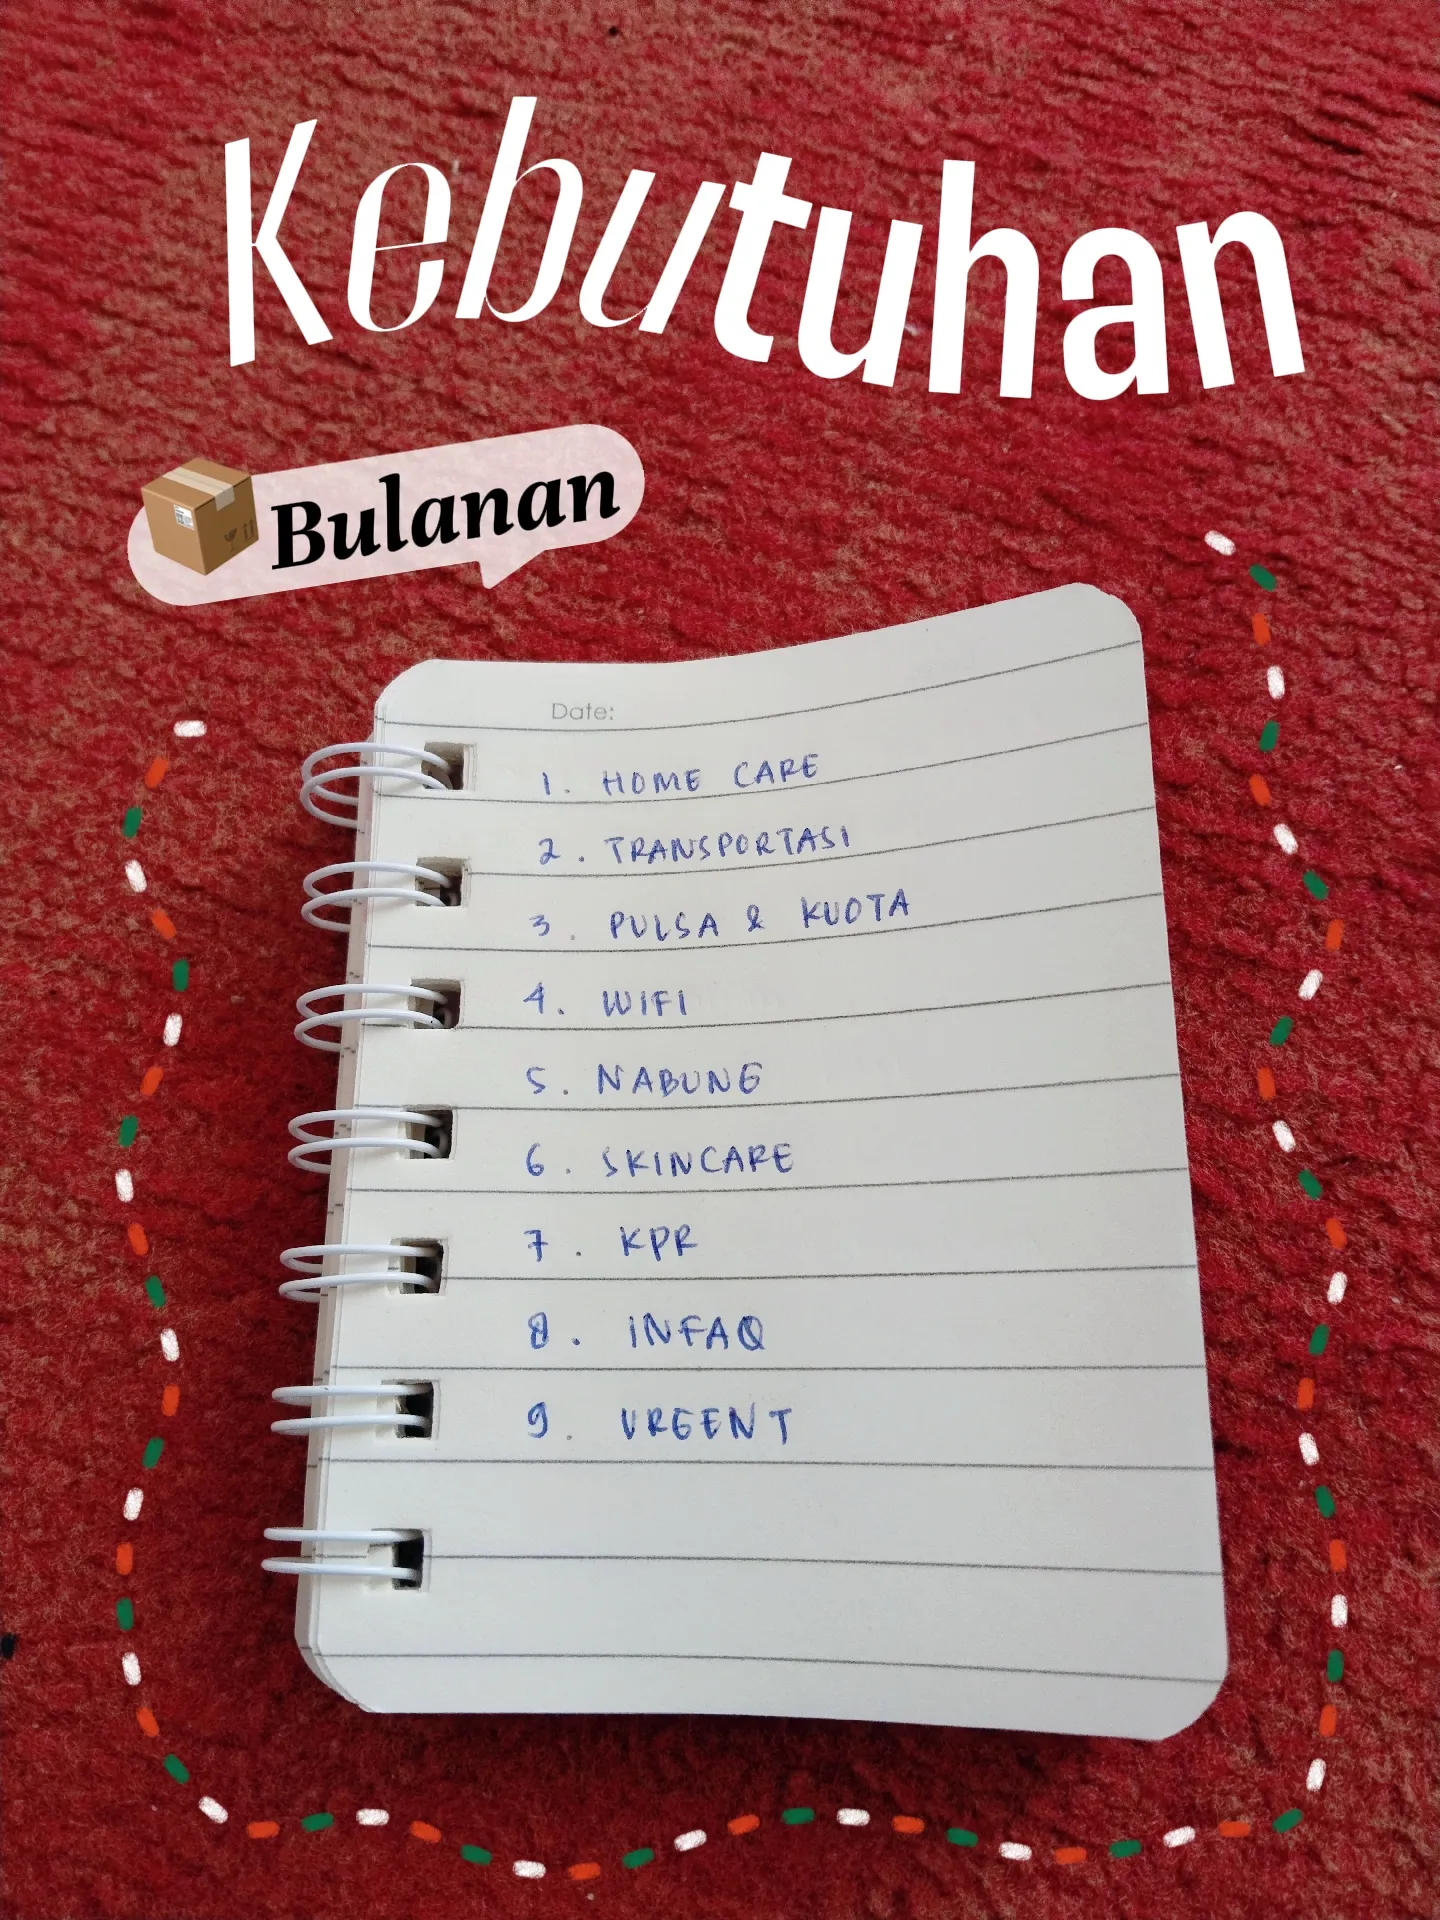 Kebutuhan
Bulanan
Date:
1. HOME CARE
2. TRANSPORTASI
3. PULSA & KUOTA
4. WIFI
5. NABUNG
6. SKINCARE
7. KPR
8. INFAQ
9. URGENT